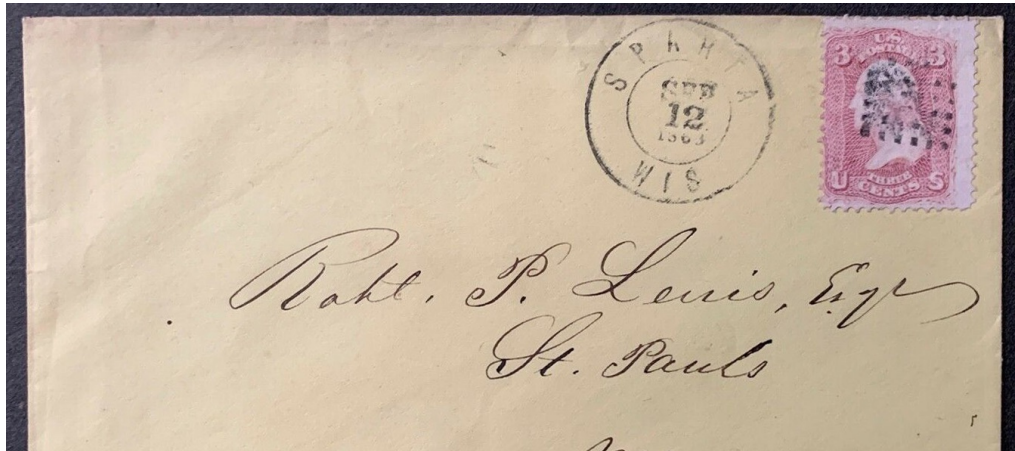 SPARTA
SEP
12
1863
WIS
3 U.S. 3
POSTAGE
U THREE S
CENTS
Robt. P. Lewis, Esqr
St. Pauls